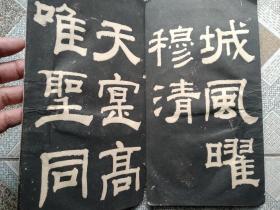 城風曜
穆清
天寔高
唯聖同